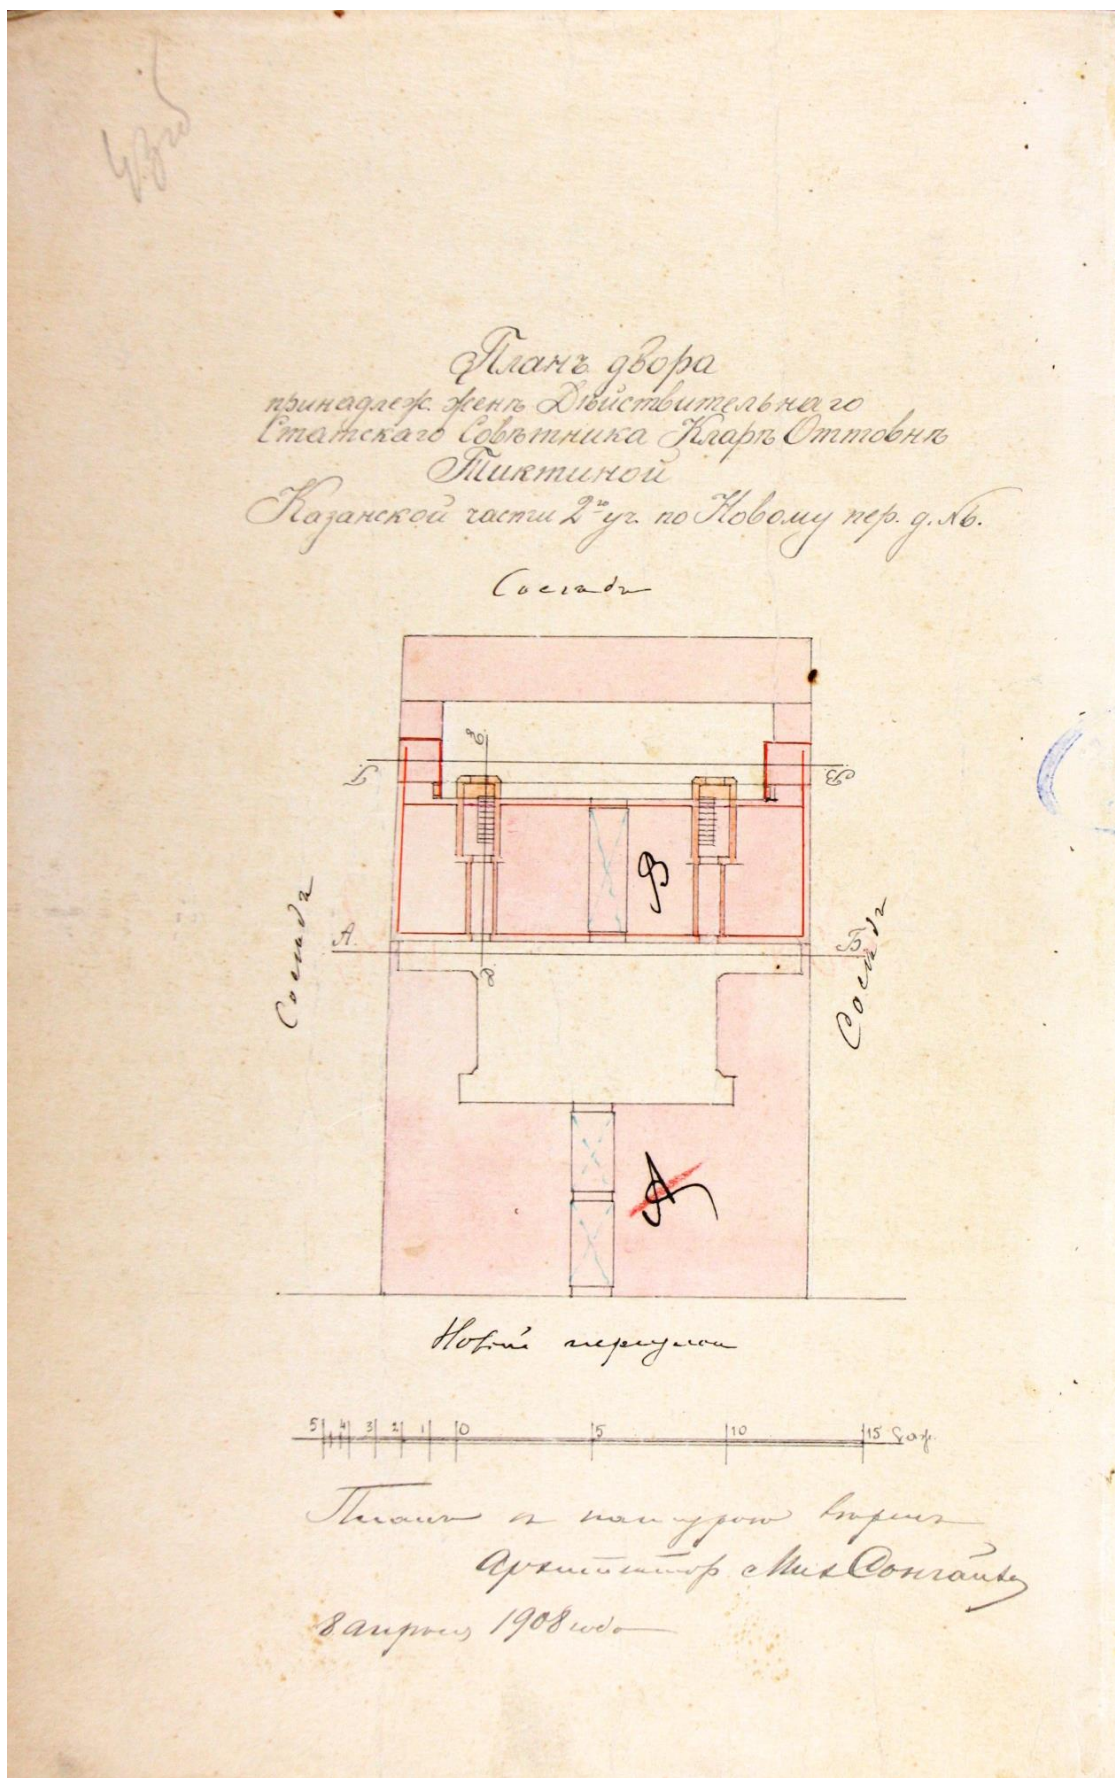 Планъ двора
принадлеж. женѣ Дѣйствительнаго
Статскаго Совѣтника Кларѣ Оттовнѣ
Тиктиной
Казанской части 2го уч. по Новому пер. д. №6.
Сосѣда
Г
В
В
Сосѣда
А.
Б
Сосѣда
А
Новый переулокъ
5 4 3 2 1 0 5 10 15 саж.
Планъ съ натурою вѣренъ
Архитекторъ Мих Сонгайло
8 апрѣля 1908 года